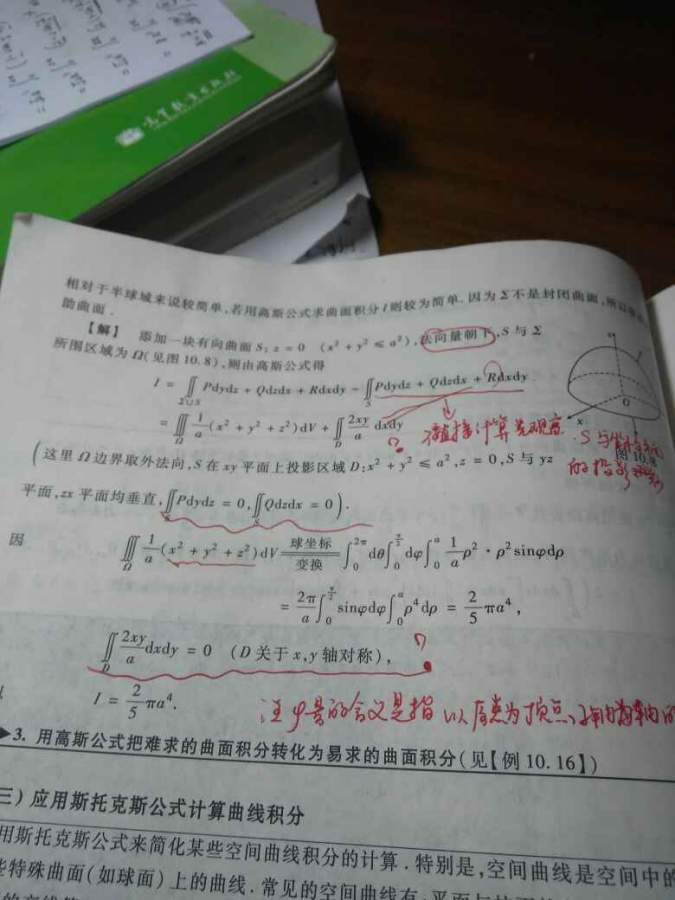 高等教育出版社
相对于半球域来说较简单,若用高斯公式求曲面积分I则较为简单.因为Σ不是封闭曲面,所以
助曲面.
【解】 添加一块有向曲面S:z=0 (x²+y²≤a²),法向量朝下,S与Σ
所围区域为Ω(见图10.8),则由高斯公式得
I = ∬_{Σ∪S} Pdydz + Qdzdx + Rdxdy − ∬_S Pdydz + Qdzdx + Rdxdy
= ∭_Ω 1/a (x² + y² + z²)dV + ∬_D 2xy/a dxdy
直接计算 S与
图10.8
的投影
(这里Ω边界取外法向,S在xy平面上投影区域D:x²+y²≤a²,z=0,S与yz
平面,zx平面均垂直,∬_S Pdydz = 0,∬_S Qdzdx = 0).
因 ∭_Ω 1/a (x² + y² + z²)dV 球坐标变换 = ∫_0^{2π} dθ ∫_0^{π/2} dφ ∫_0^a 1/a ρ² · ρ² sinφdρ
= 2π/a ∫_0^{π/2} sinφdφ ∫_0^a ρ⁴dρ = 2/5 πa⁴,
∬_D 2xy/a dxdy = 0 (D关于x,y轴对称),
I = 2/5 πa⁴.
注 φ 的含义是指 以原点为顶点、
▶3. 用高斯公式把难求的曲面积分转化为易求的曲面积分(见【例10.16】)
三) 应用斯托克斯公式计算曲线积分
用斯托克斯公式来简化某些空间曲线积分的计算.特别是,空间曲线是空间中的
些特殊曲面(如球面)上的曲线.常见的空间曲线有:平面与